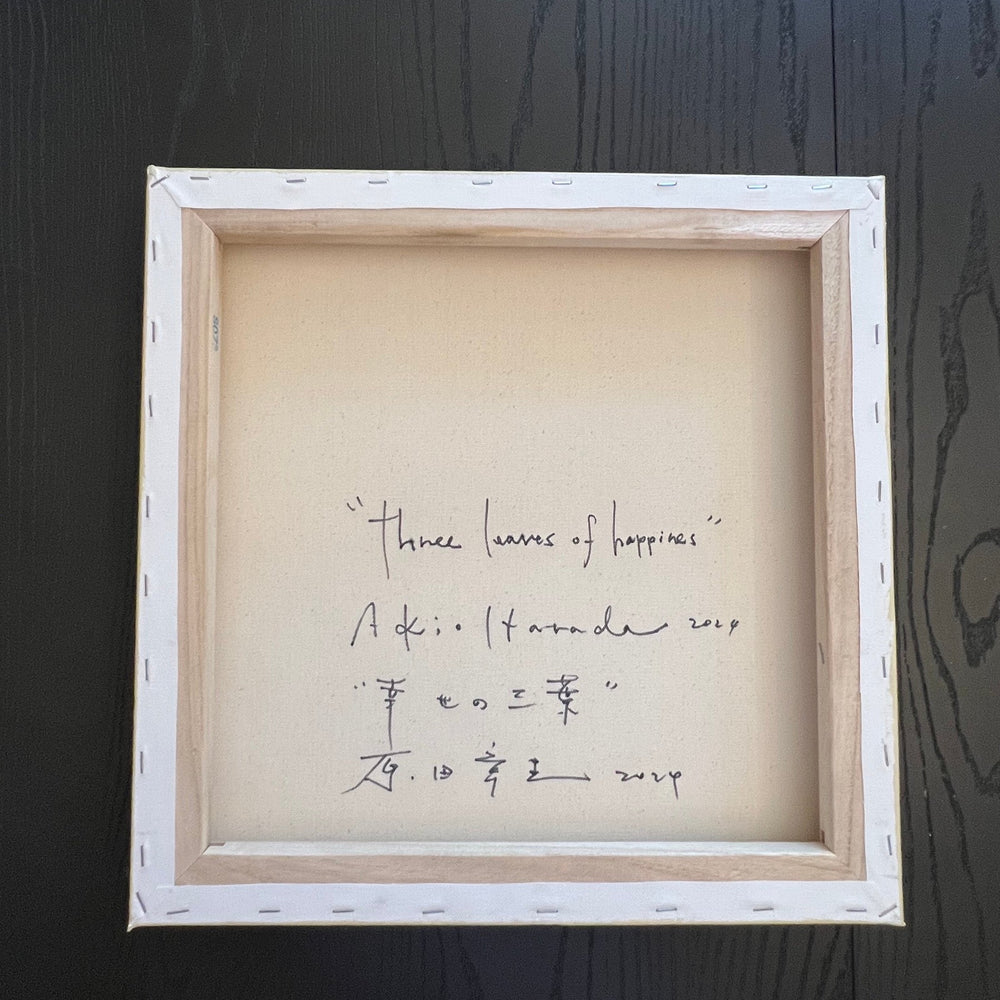 "three leaves of happines"
Akio Harada 2024
"幸せの三葉"
原田章生 2024